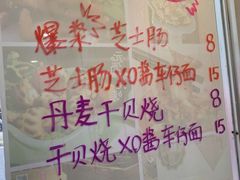 爆浆芝士肠 8
芝士肠XO酱车仔面 15
丹麦干贝烧 8
干贝烧XO酱车仔面 15